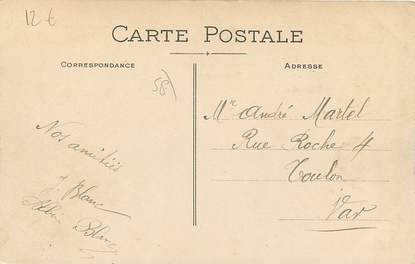 12 €
CARTE POSTALE
CORRESPONDANCE
ADRESSE
58
Mr André Martel
Rue Roche 4
Toulon
Var
Nos amitiés
Blanc